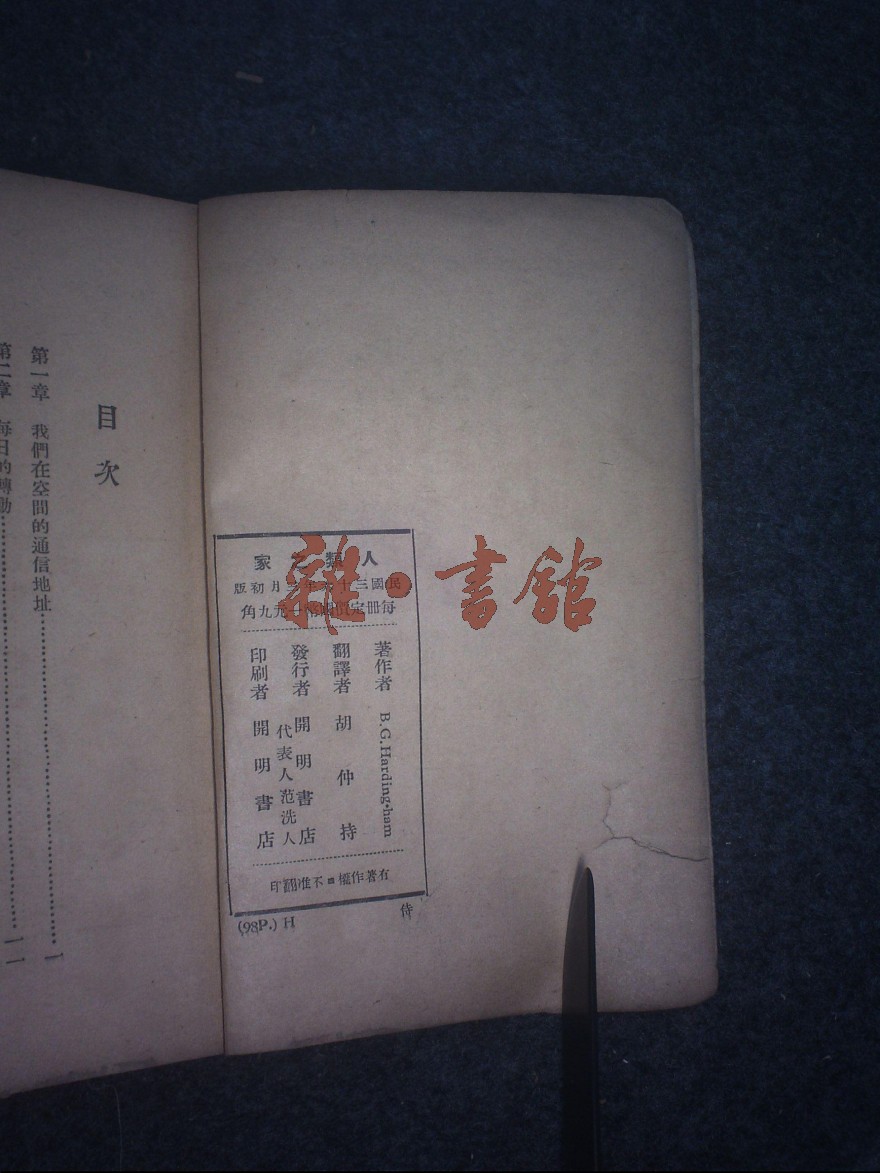 人類之家
民國三十年三月初版
每冊定價國幣一元九角
著作者 B.G.Harding-ham
翻譯者 胡仲持
發行者 開明書店
代表人范洗人
印刷者 開明書店
有著作權■不准翻印
(98P.) H
侍
雜·書館
目次
第一章 我們在空間的通信地址 一
第二章 每日的轉動 一一